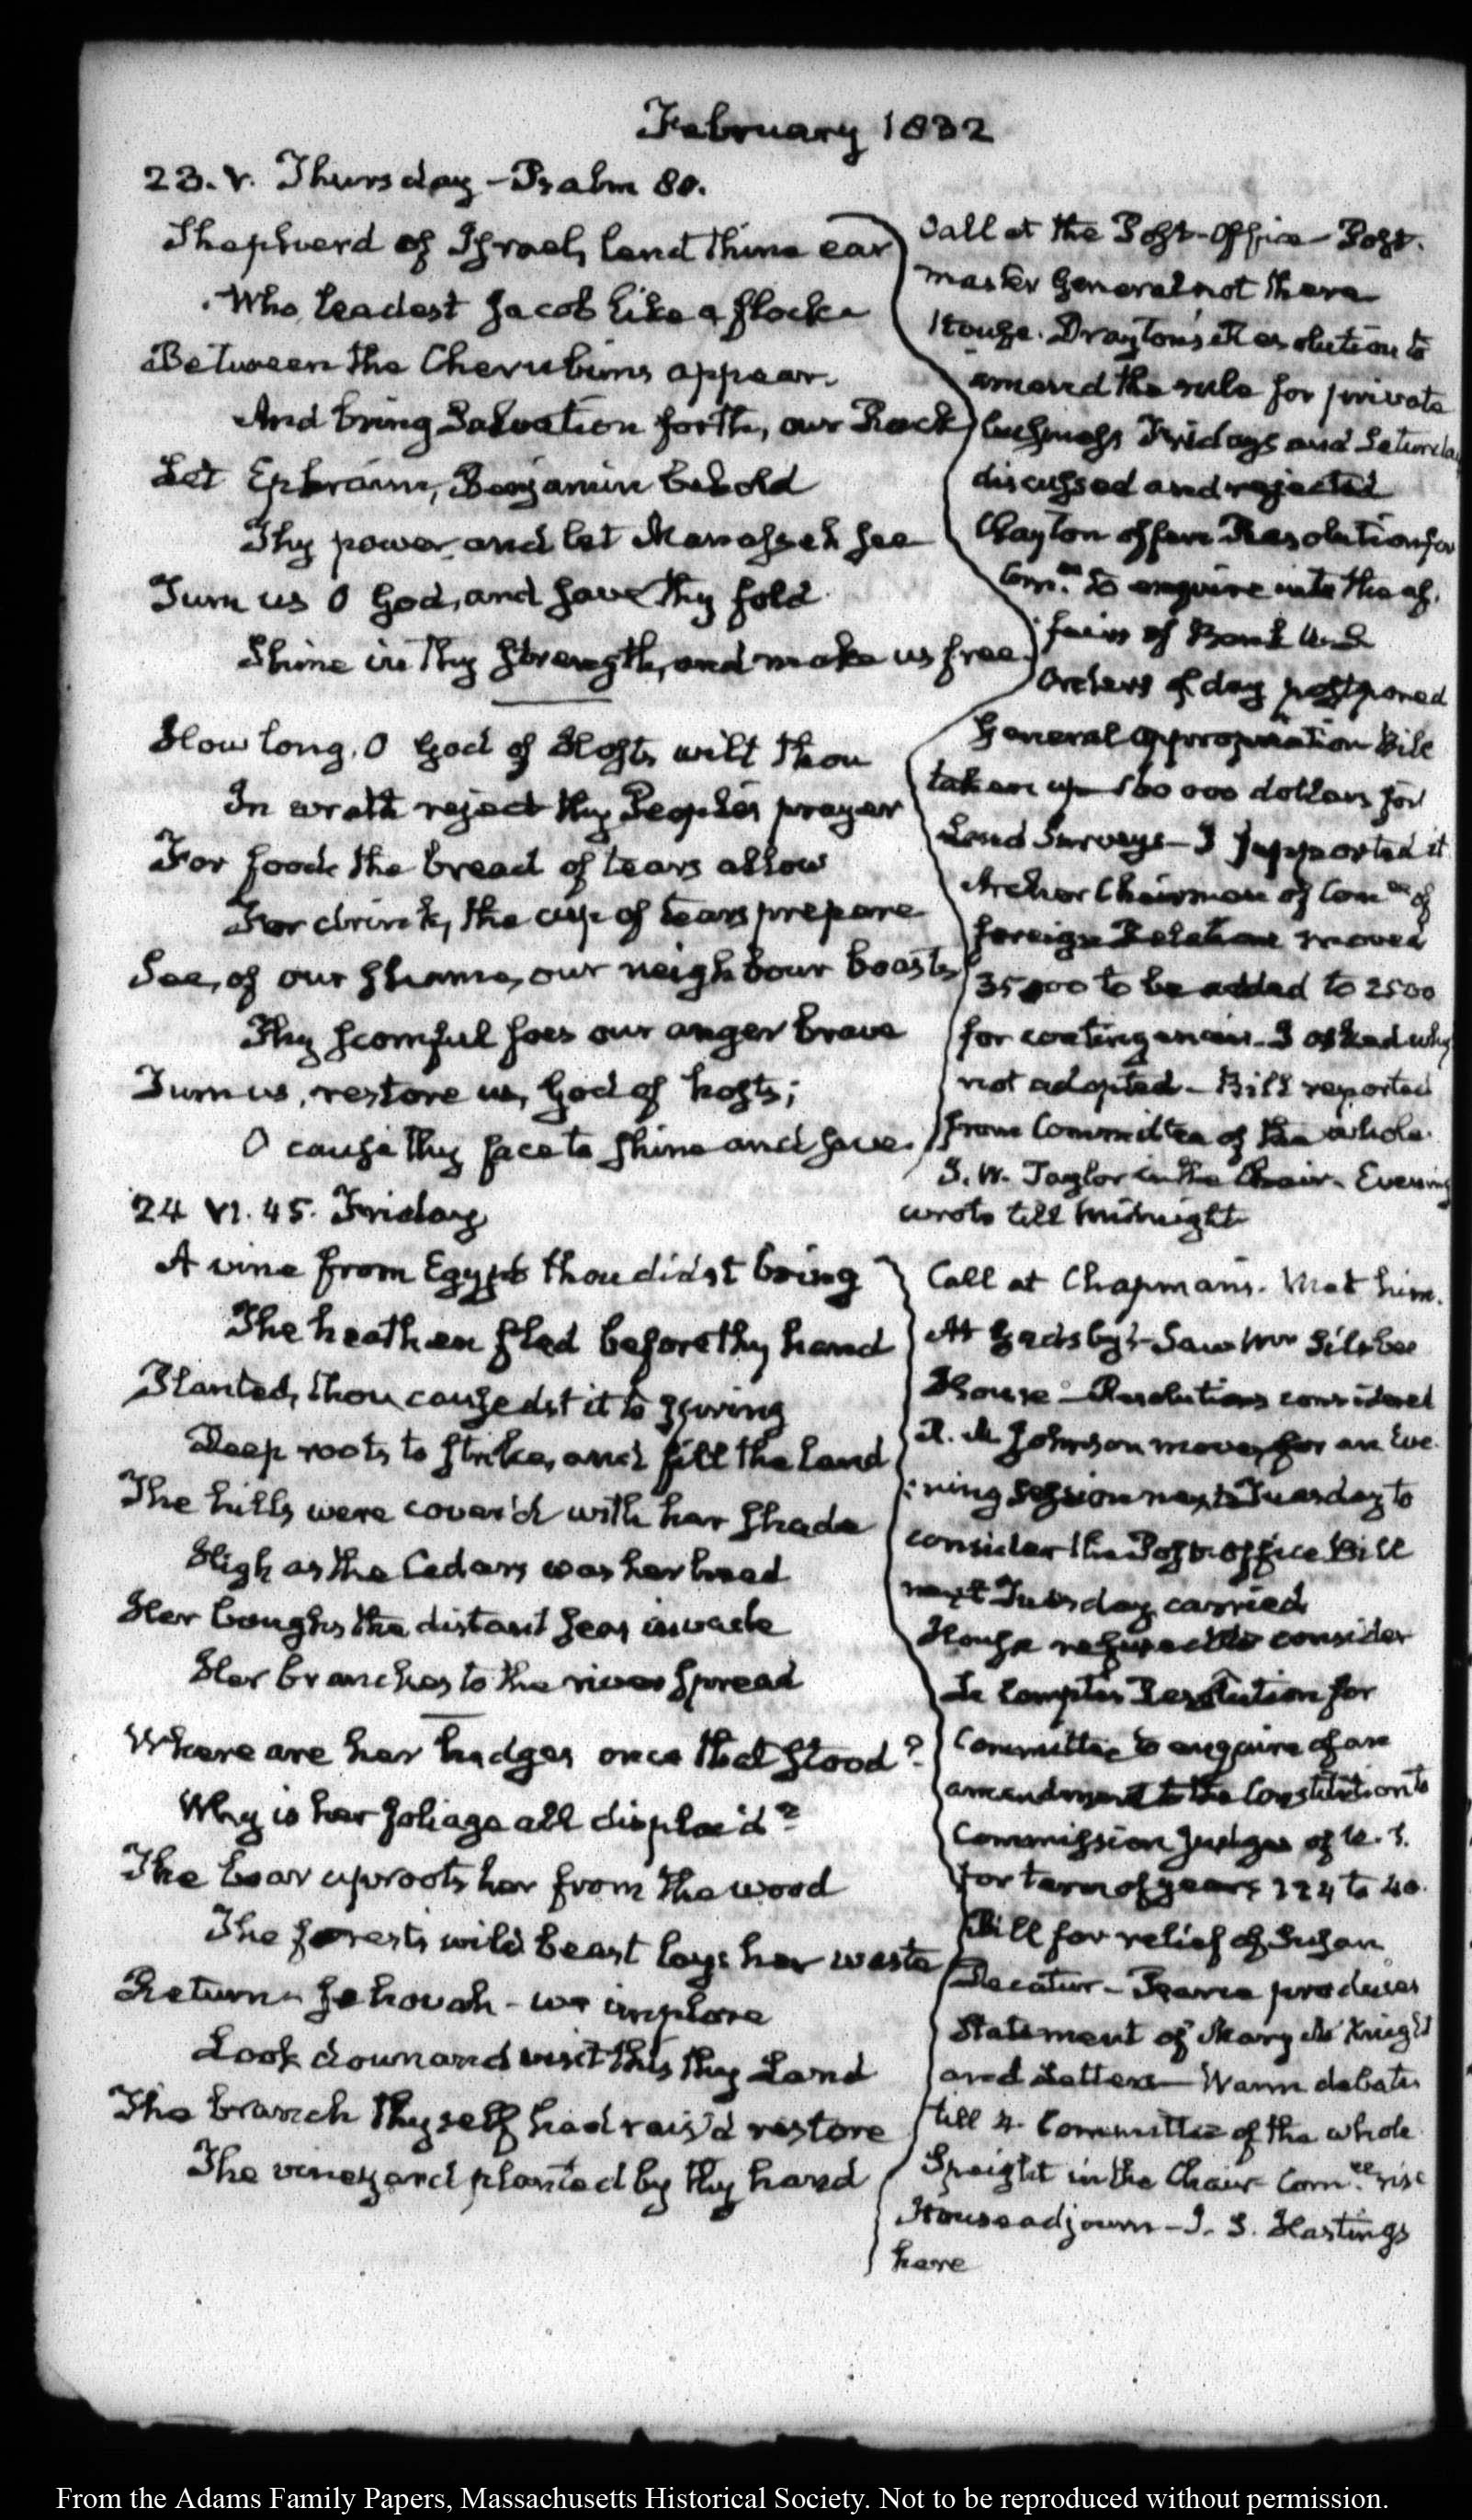 February 1832
23. V. Thursday - Psalm 80.
Shepherd of Israel, lend thine ear
Who leadest Jacob like a flock
Between the Cherubims appear.
And bring Salvation forth, our Rock
Let Ephraim, Benjamin behold
Thy power, and let Manasseh see
Turn us O God, and save thy fold
Shine in thy strength, and make us free.
How long, O God of Hosts, wilt thou
In wrath reject thy People's prayer
For food the bread of tears allow
For drink, the cup of tears prepare
See, of our shame, our neighbour boasts
Thy scornful foes our anger brave
Turn us, restore us, God of hosts;
O cause thy face to shine and save.
Call at the Post-Office - Post-
master General not there
House. Drayton's Resolution to
amend the rule for private
business Fridays and Saturday
discussed and rejected
Clayton offers Resolution for
Comee. to enquire into the af-
fairs of Bank U.S
Orders of day postponed
General Appropriation Bill
taken up 160 000 dollars for
Land Surveys - I supported it
Archer Chairman of Comee of
foreign Relations moved
35000 to be added to 2500
for contingencies. I asked why
not adopted - Bill reported
from Committee of the whole.
J. W. Taylor in the Chair. Evening
wrote till midnight
24 VI. 45. Friday
A vine from Egypt thou didst bring
The heathen fled before thy hand
Planted, thou causedst it to spring
Deep roots to strike, and fill the land
The hills were cover'd with her shade
High as the Cedars was her head
Her boughs the distant seas invade
Her branches to the river spread
Where are her hedges once that stood?
Why is her foliage all displac'd?
The boar uproots her from the wood
The forest's wild beast lays her waste
Return Jehovah - we implore
Look down and visit this thy Land
The branch thyself had rais'd restore
The vineyard planted by thy hand
Call at Chapman's. Met him.
At Gadsby's - Saw Mr Silsbee
House - Resolutions considered
R. M Johnson moves for an Eve-
:ning session next Tuesday to
consider the Post-office Bill
next Tuesday carried
House refused to consider
Le Compte's Resolution for
Committee to enquire of an
amendment to the Constitution to
Commission Judges of U.S.
for term of years 124 to 40.
Bill for relief of Susan
Decatur - Pearce produces
Statement of Mary De Knight
and Letters - Warm debate
till 4. Committee of the whole
Speight in the Chair Comee. rise
House adjourn - J. S. Hastings
here
From the Adams Family Papers, Massachusetts Historical Society. Not to be reproduced without permission.